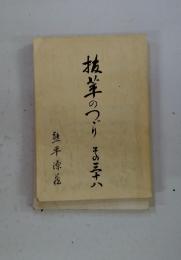 抜萃のつゞり その三十八
熊平源蔵